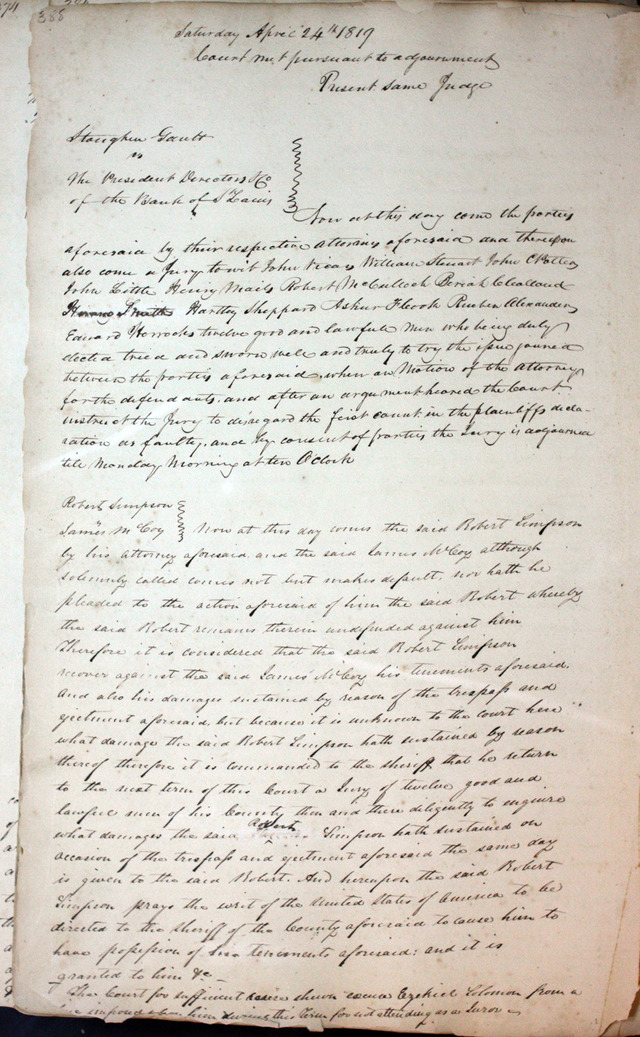 388
Saturday April 24th 1819
Court met pursuant to adjournment
Present same Judge
Stoughton Gantt
vs
The President Directors & Co
of the Bank of St Louis
Now at this day come the parties
aforesaid by their respective Attornies aforesaid and thereupon
also come a Jury to wit John Vicary William Stewart John C Potter
John Little Henry Mails Robert McCulloch Beriah Cleeland
Hartley Sheppard Asher F Cook Reuben Alexander
Edward Horrocks twelve good and lawful Men who being duly
elected tried and sworn well and truly to try the issue joined
between the parties aforesaid, when on Motion of the Attorney
for the defendants, and after an argument heared the Court
instruct the Jury to disregard the first count in the plaintiffs decla-
ration as faulty, and by consent of parties the Jury is adjourned
till Monday Morning at ten O'Clock
Robert Simpson
James McCoy
Now at this day comes the said Robert Simpson
by his attorney aforesaid, and the said James McCoy although
solemnly called comes not but makes default, nor hath he
pleaded to the action aforesaid of him the said Robert whereby
the said Robert remains therein undefended against him
Therefore it is considered that the said Robert Simpson
recover against the said James McCoy his tenements aforesaid.
And also his damages sustained by reason of the trespass and
ejectment aforesaid, but because it is unknown to the court here
what damage the said Robert Simpson hath sustained by reason
thereof therefore it is commanded to the sheriff that he return
to the next term of this Court a Jury of twelve good and
lawful men of his County then and there diligently to enquire
what damages the said Robert Simpson hath sustained on
occasion of the trespass and ejectment aforesaid the same day
is given to the said Robert. And hereupon the said Robert
Simpson prays the writ of the United States of America to be
directed to the sheriff of the County aforesaid to cause him to
have possession of his tenements aforesaid: and it is
granted to him &c
The Court for sufficient cause shewn excuse Ezekiel Solomon from a
fine imposed upon him during this Term for not attending as a Juror